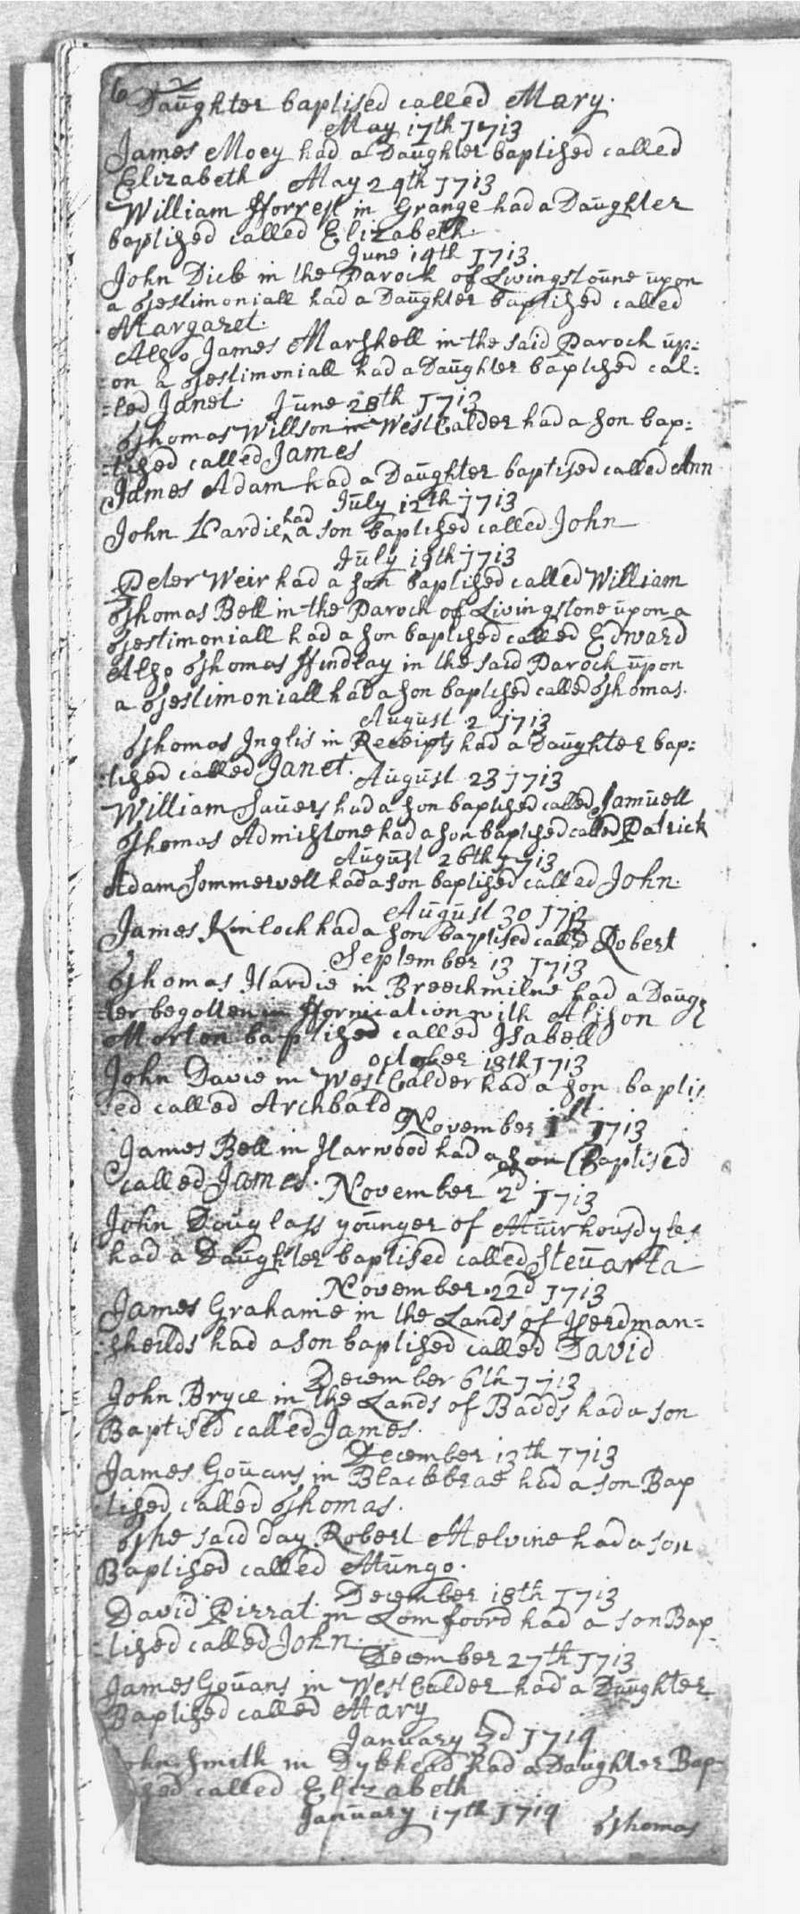 6 Daughter baptised called Mary.
May 17th 1713
James Moey had a Daughter baptised called
Elizabeth May 24th 1713
William fforrest in Grange had a Daughter
baptised called Elizabeth.
June 14th 1713
John Dick in the Paroch of Livingstoune upon
a Testimoniall had a Daughter baptised called
Margaret.
Also James Marshell in the said Paroch up:
:on a Testimoniall had a Daughter baptised cal:
:led Janet. June 28th 1713
Thomas Willson in West Calder had a son bap:
:tised called James
James Adam had a Daughter baptised called Ann
July 12th 1713
John Hardie had a son baptised called John
July 19th 1713
Peter Weir had a son baptised called William
Thomas Bell in the Paroch of Livingstone upon a
Testimoniall had a son baptised called Edward
Also Thomas ffindlay in the said Paroch upon
a Testimoniall had a son baptised called Thomas.
August 2 1713
Thomas Inglis in Receipts had a Daughter bap:
:tised called Janet. August 23 1713
William Sauers had a son baptised called Samuell
Thomas Admistone had a son baptised called Patrick
August 26th 1713
Adam Sommervell had a son baptised called John.
August 30 1713
James Kinloch had a son baptised called Robert
September 13 1713
Thomas Hardie in Breechmilne had a Daugh
ter begotten in ffornication with Alison
Morton baptised called Isabell
october 18th 1713
John Davie in West Calder had a son baptis
sed called Archbald
November 1st 1713
James Bell in Harwood had a son Baptised
called James. November 2d 1713
John Douglass younger of Muirhousdykes
had a Daughter baptised called Steuarta
November 22d 1713
James Grahame in the Lands of Herdman=
:sheilds had a son baptised called David
December 6th 1713
John Bryce in the Lands of Badds had a son
Baptised called James.
December 13th 1713
James Gouans in Blackbrae had a son Bap
:tised called Thomas.
The said day Robert Melvine had a son
Baptised called Mungo.
December 18th 1713
David Pirrat in Lomfoord had a son Bap
:tised called John. December 27th 1713
James Gouans in West Calder had a Daughter
Baptised called Mary
January 3d 1714
John Smith in Dykhead had a Daughter Bap
tised called Elizabeth
January 17th 1714 Thomas